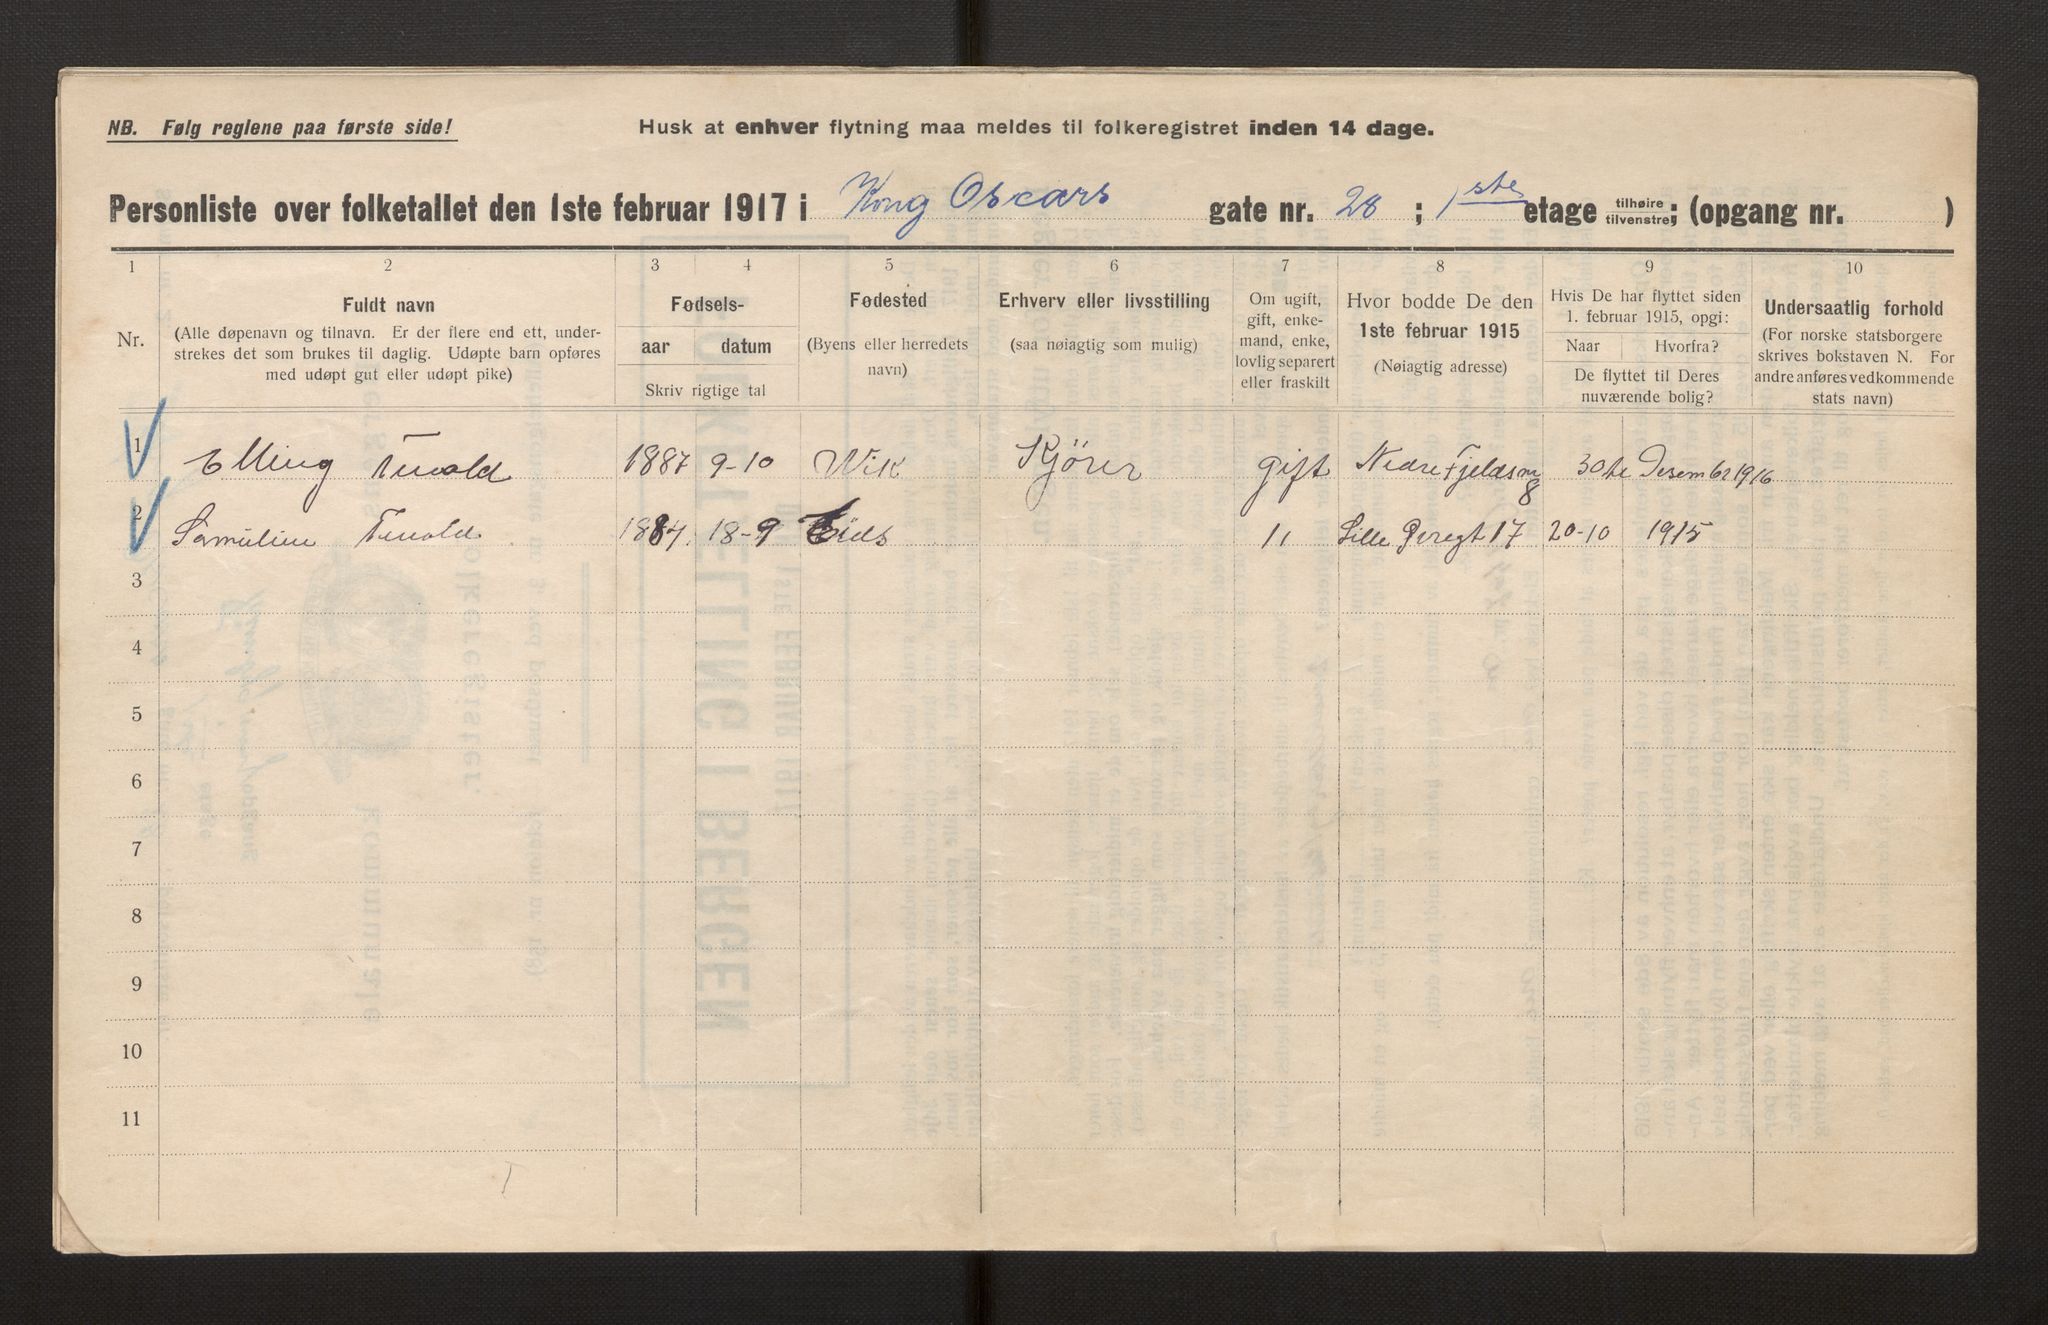 NB. Følg reglene paa første side!
Husk at enhver flytning maa meldes til folkeregistret inden 14 dage.
Personliste over folketallet den 1ste februar 1917 i Kong Oscars gate nr. 28 ; 1ste etage tilhøire tilvenstre; (opgang nr. )
1 2 3 4 5 6 7 8 9 10
Nr.
Fuldt navn
(Alle døpenavn og tilnavn. Er der flere end ett, under-
strekes det som brukes til daglig. Udøpte barn opføres
med udøpt gut eller udøpt pike)
Fødsels-
aar datum
Skriv rigtige tal
Fødested
(Byens eller herredets
navn)
Erhverv eller livsstilling
(saa nøiagtig som mulig)
Om ugift,
gift, enke-
mand, enke,
lovlig separert
eller fraskilt
Hvor bodde De den
1ste februar 1915
(Nøiagtig adresse)
Hvis De har flyttet siden
1. februar 1915, opgi:
Naar Hvorfra?
De flyttet til Deres
nuværende bolig?
Undersaatlig forhold
(For norske statsborgere
skrives bokstaven N. For
andre anføres vedkommende
stats navn)
1 Elling 1887 9-10 Wik Kjörer gift Nedre Fjeldsm 8 30te Desember 1916
2 1884 18-9 Eids 11 Lille 17 20-10 1915
3
4
5
6
7
8
9
10
11